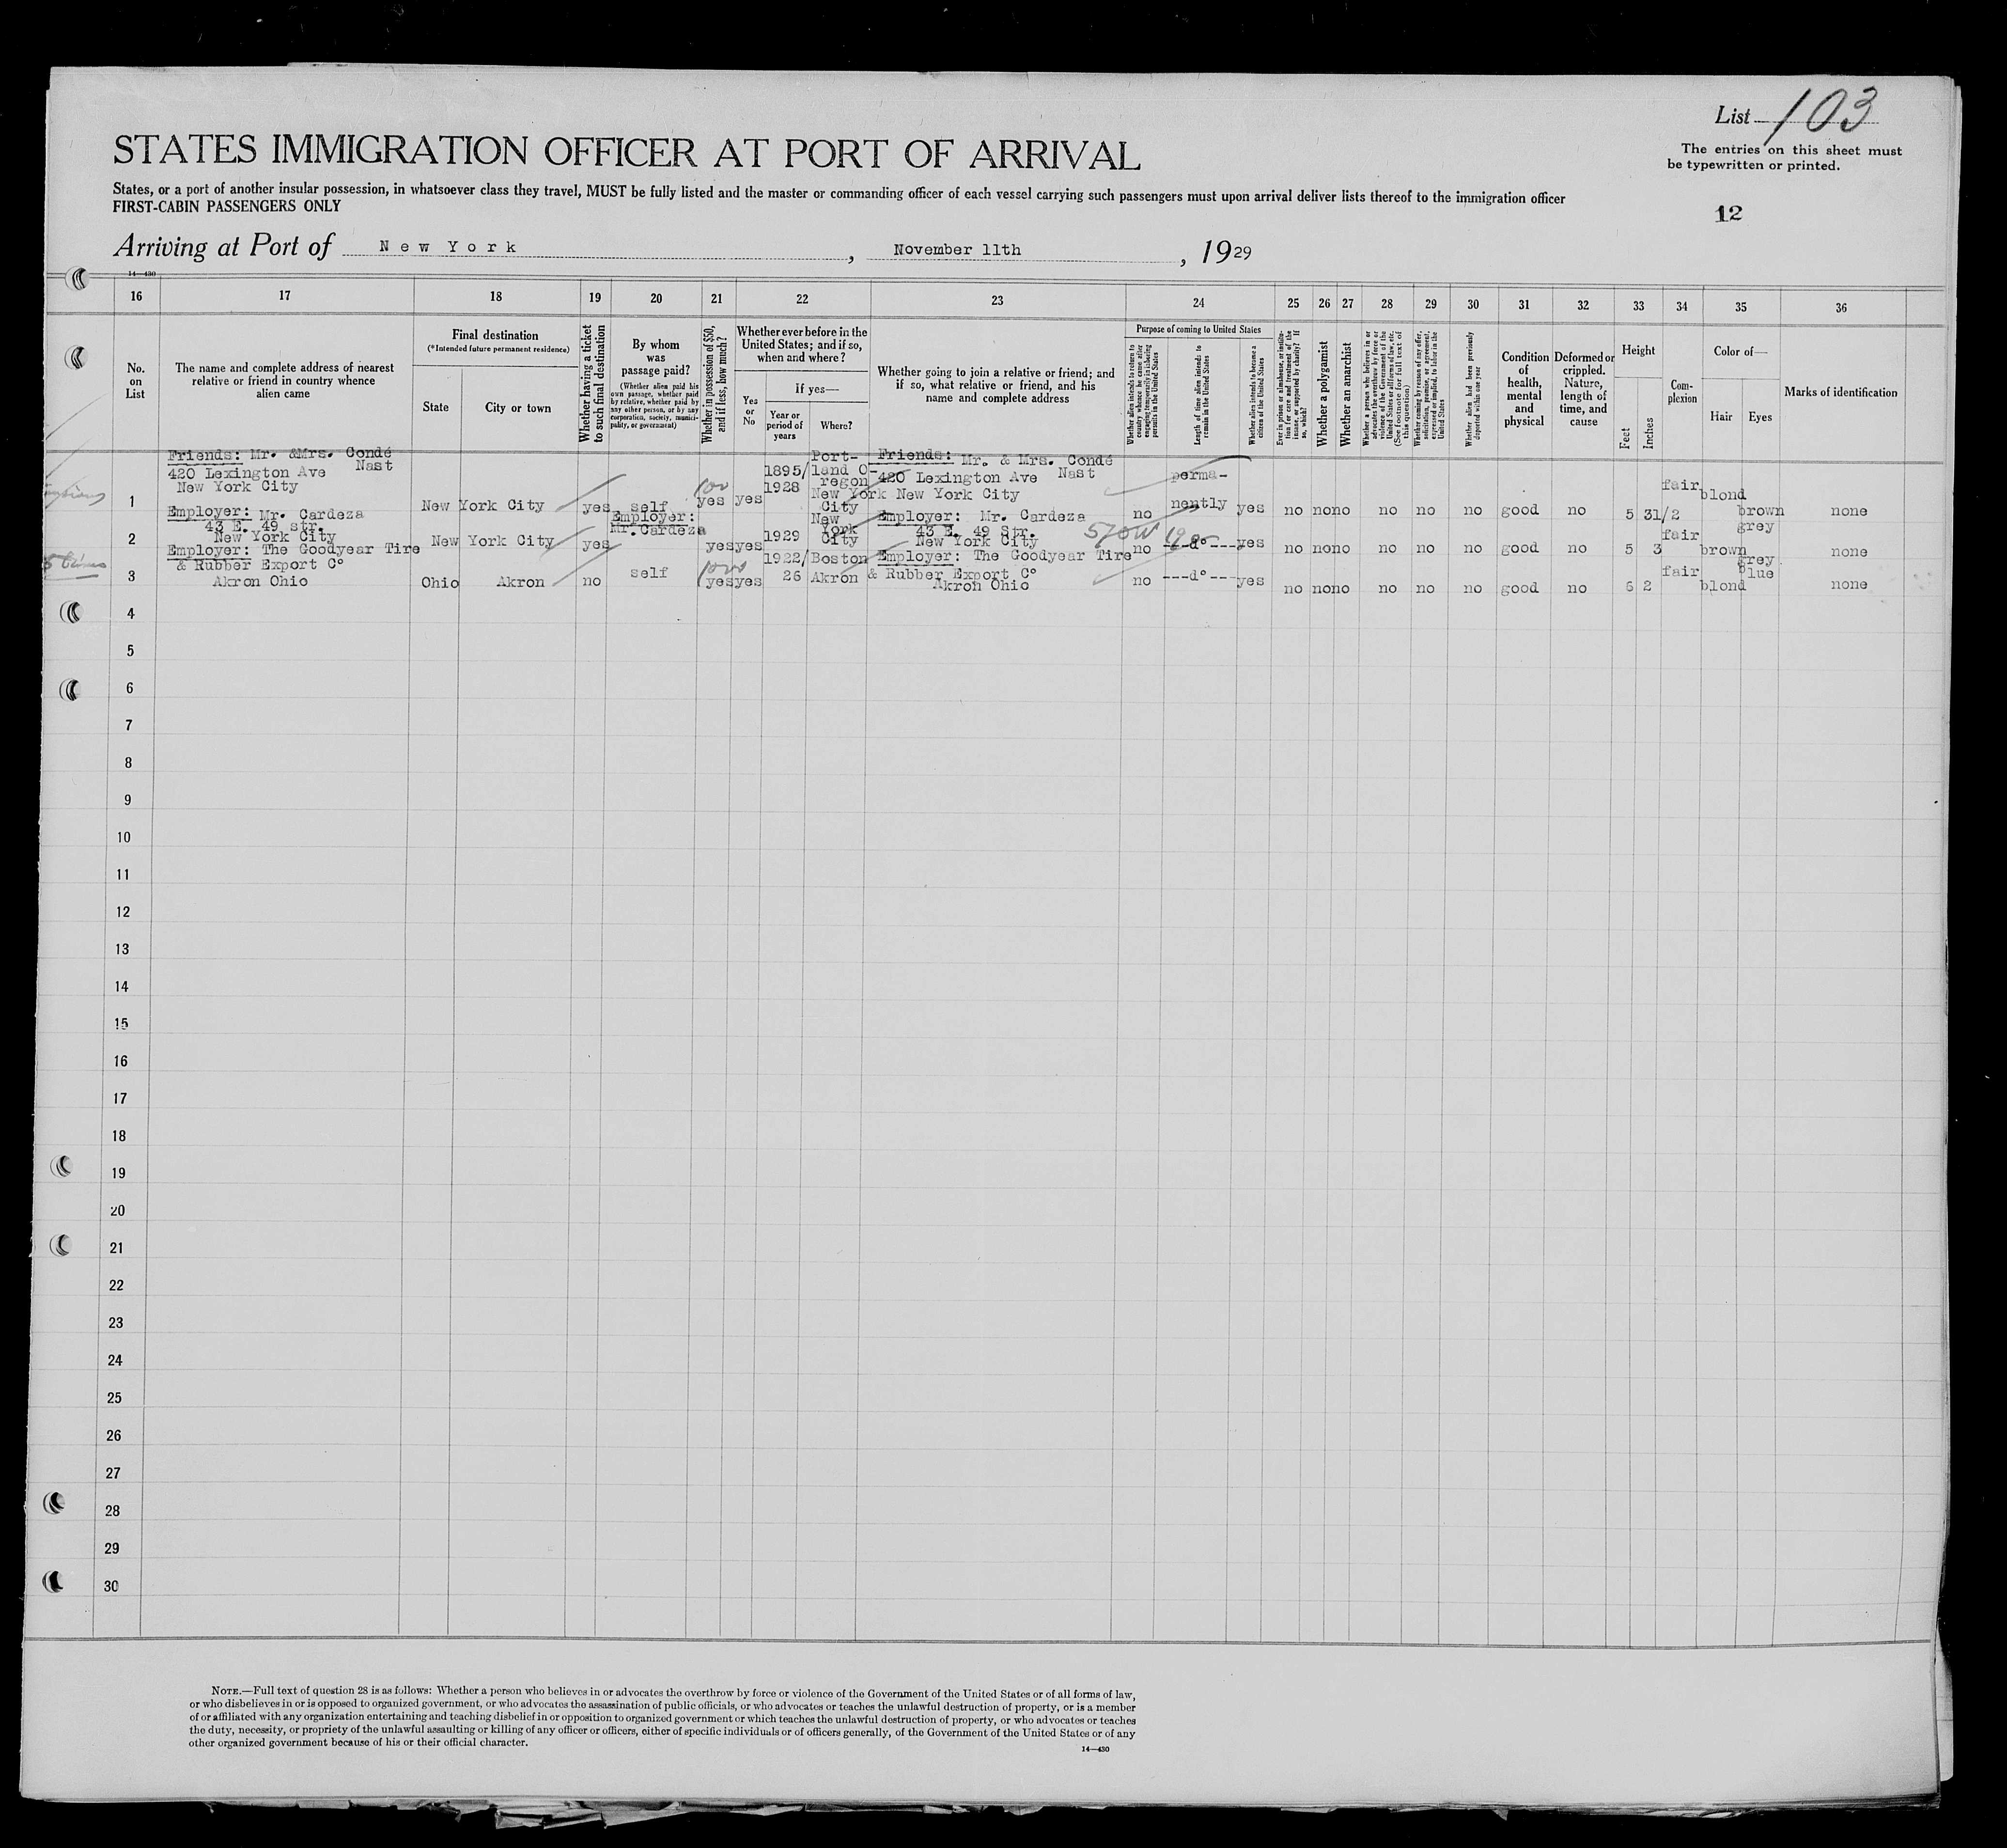 List 103
The entries on this sheet must
be typewritten or printed.
12
STATES IMMIGRATION OFFICER AT PORT OF ARRIVAL
States, or a port of another insular possession, in whatsoever class they travel, MUST be fully listed and the master or commanding officer of each vessel carrying such passengers must upon arrival deliver lists thereof to the immigration officer
FIRST-CABIN PASSENGERS ONLY
Arriving at Port of New York, November 11th, 1929
14—430
16 17 18 19 20 21 22 23 24 25 26 27 28 29 30 31 32 33 34 35 36
No.
on
List
The name and complete address of nearest
relative or friend in country whence
alien came
Final destination
(*Intended future permanent residence)
State
City or town
Whether having a ticket
to such final destination
By whom
was
passage paid?
(Whether alien paid his
own passage, whether paid
by relative, whether paid by
any other person, or by any
corporation, society, munici-
pality, or government)
Whether in possession of $50,
and if less, how much?
Whether ever before in the
United States; and if so,
when and where?
Yes
or
No
If yes—
Year or
period of
years
Where?
Whether going to join a relative or friend; and
if so, what relative or friend, and his
name and complete address
Purpose of coming to United States
Whether alien intends to return to
country whence he came after
engaging temporarily in laboring
pursuits in the United States
Length of time alien intends to
remain in the United States
Whether alien intends to become a
citizen of the United States
Ever in prison or almshouse, or institu-
tion for care and treatment of the
insane, or supported by charity? If
so, which?
Whether a polygamist
Whether an anarchist
Whether a person who believes in or
advocates the overthrow by force or
violence of the Government of the
United States or all forms of law, etc.
(See footnote for full text of
this question)
Whether coming by reason of any offer,
solicitation, promise, or agreement,
expressed or implied, to labor in the
United States
Whether alien had been previously
deported within one year
Condition
of
health,
mental
and
physical
Deformed or
crippled.
Nature,
length of
time, and
cause
Height
Feet
Inches
Com-
plexion
Color of—
Hair
Eyes
Marks of identification
1
Friends: Mr. &Mrs. Condé
Nast
420 Lexington Ave
New York City
New York City
yes
self
100
yes
yes
1895/
1928
Port-
land O-
regon
New York
City
Friends: Mr. & Mrs. Condé
Nast
420 Lexington Ave
New York City
no
perma-
nently
yes
no no no no no no good no 5 31/2 fair blond brown none
2
Employer: Mr. Cardeza
43 E. 49 str.
New York City
New York City
yes
Employer:
Mr. Cardeza
yes yes
1929
New
York
City
Employer: Mr. Cardeza
43 E. 49 Str.
New York City
no ---d°--- yes
no no no no no no good no 5 3 fair brown grey none
3
Employer: The Goodyear Tire
& Rubber Export C°
Akron Ohio
Ohio Akron
no
self
yes yes
1922/
26
Boston
Akron
Employer: The Goodyear Tire
& Rubber Export C°
Akron Ohio
no ---d°--- yes
no no no no no no good no 6 2 fair blond grey
blue none
4
5
6
7
8
9
10
11
12
13
14
15
16
17
18
19
20
21
22
23
24
25
26
27
28
29
30
NOTE.—Full text of question 28 is as follows: Whether a person who believes in or advocates the overthrow by force or violence of the Government of the United States or of all forms of law,
or who disbelieves in or is opposed to organized government, or who advocates the assassination of public officials, or who advocates or teaches the unlawful destruction of property, or is a member
of or affiliated with any organization entertaining and teaching disbelief in or opposition to organized government or which teaches the unlawful destruction of property, or who advocates or teaches
the duty, necessity, or propriety of the unlawful assaulting or killing of any officer or officers, either of specific individuals or of officers generally, of the Government of the United States or of any
other organized government because of his or their official character.
14—430